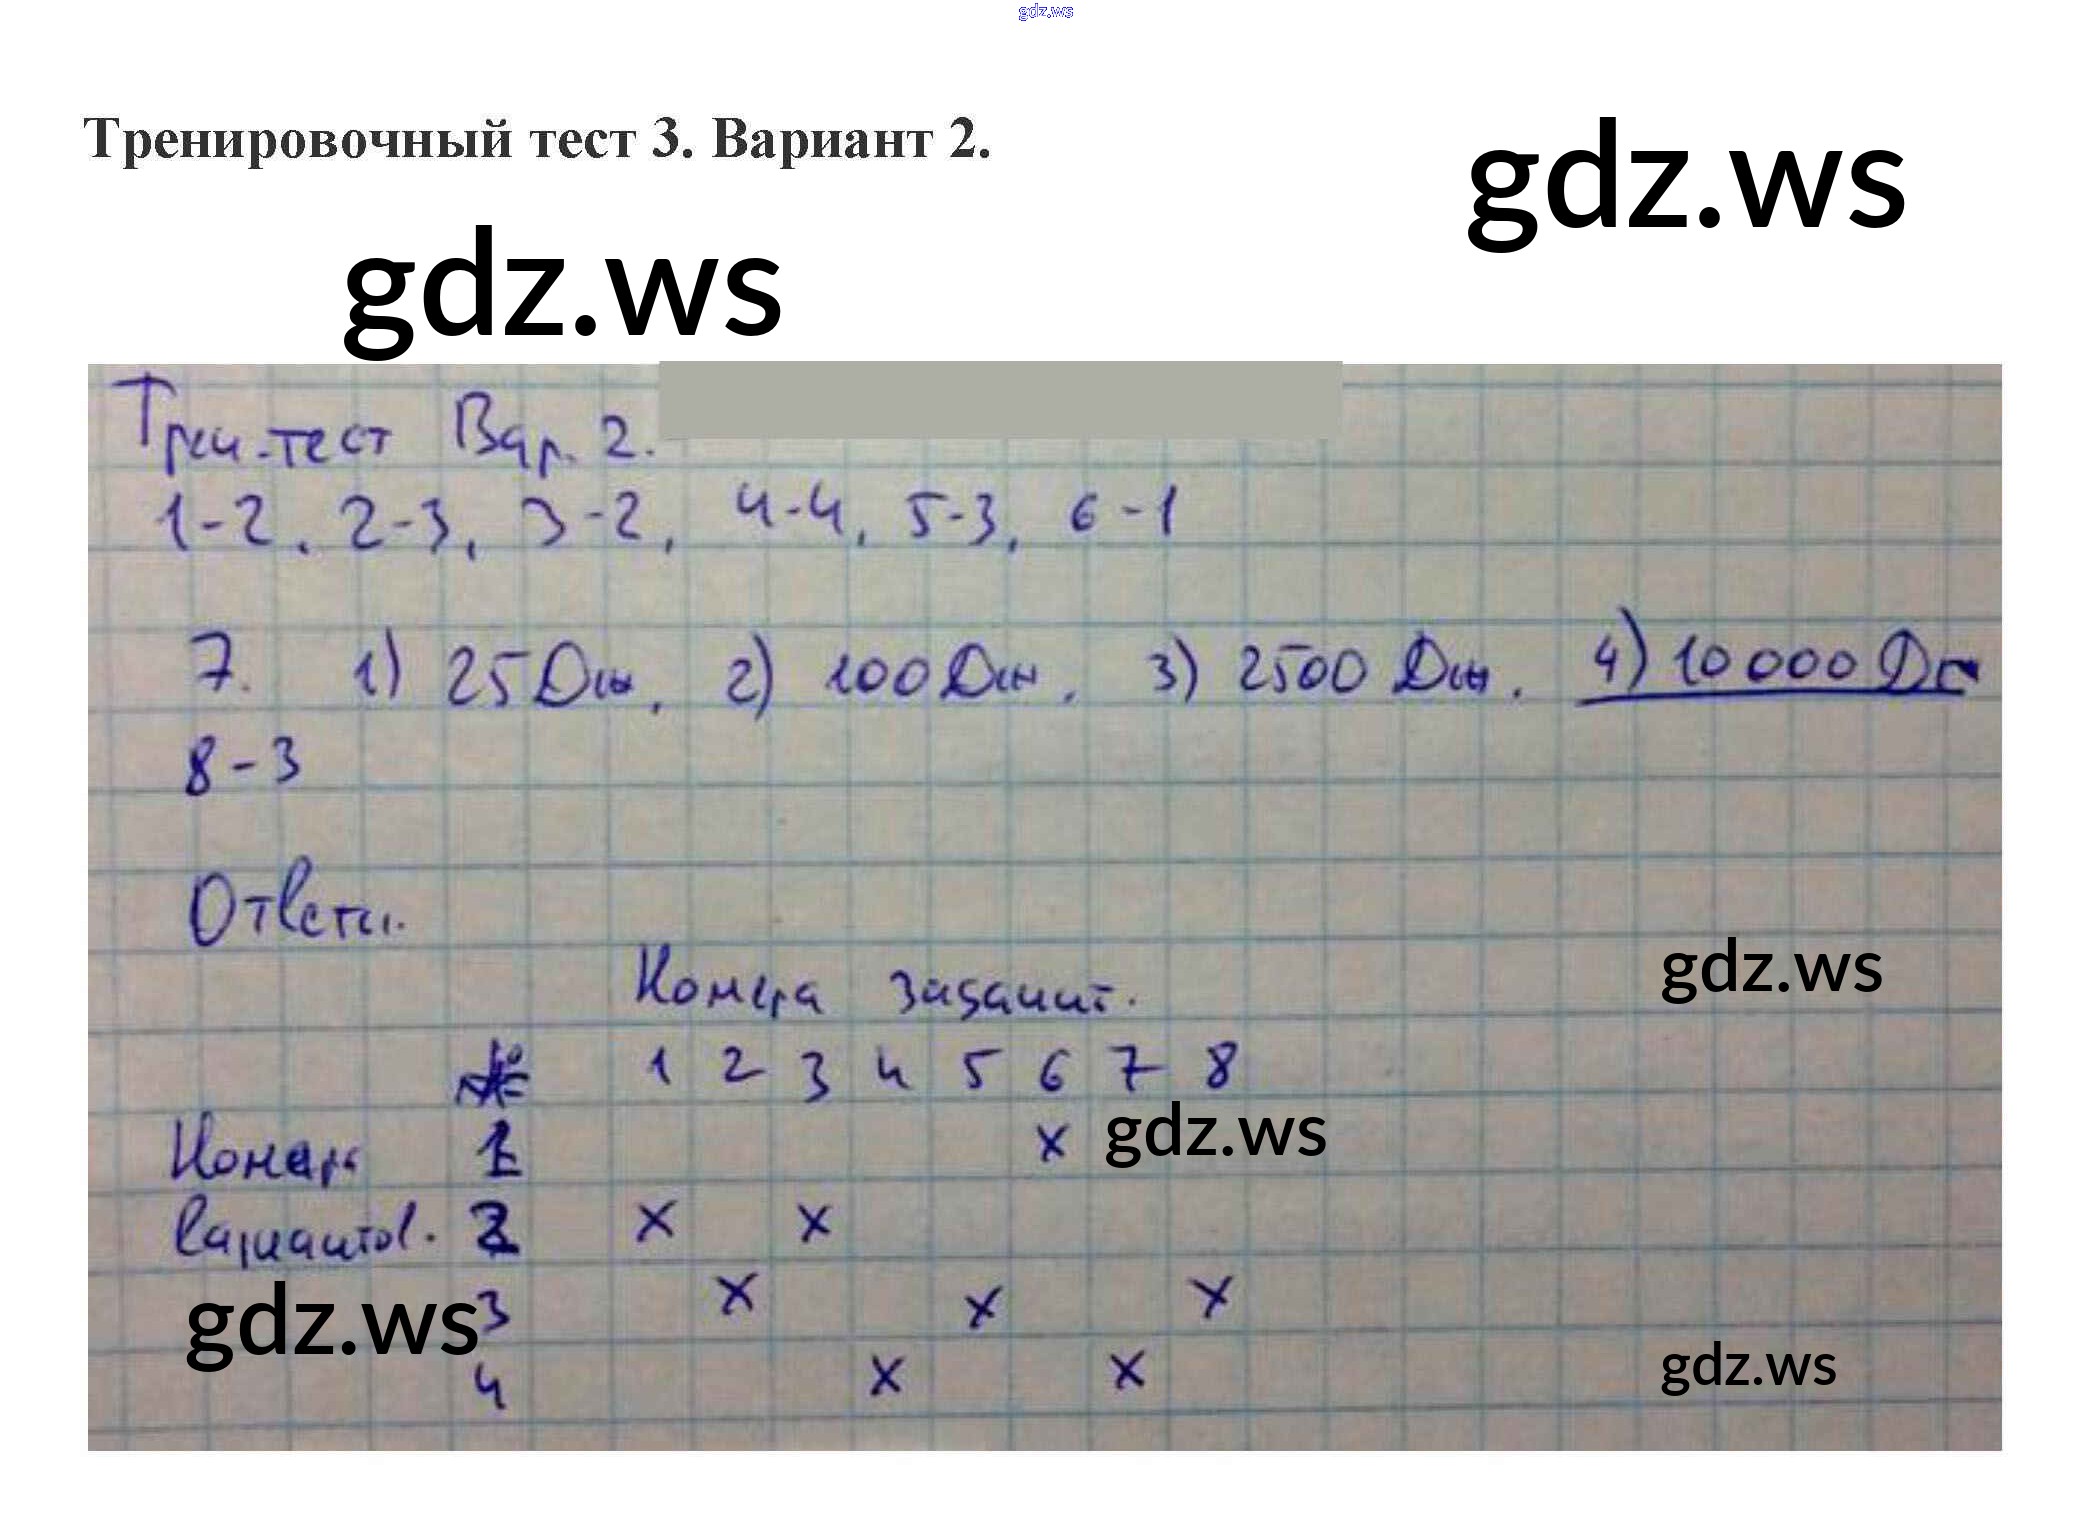 gdz.ws
Тренировочный тест 3. Вариант 2.
gdz.ws
gdz.ws
Трен.тест Вар. 2.
1-2, 2-3, 3-2, 4-4, 5-3, 6-1
7. 1) 25 Дж, 2) 100 Дж, 3) 2500 Дж, 4) 10 000 Дж
8-3
Ответы.
Номера заданит.
gdz.ws
№ 1 2 3 4 5 6 7 8
Номера 1 x
gdz.ws
вариантов. 2 x x
3 x x x
gdz.ws
4 x x
gdz.ws